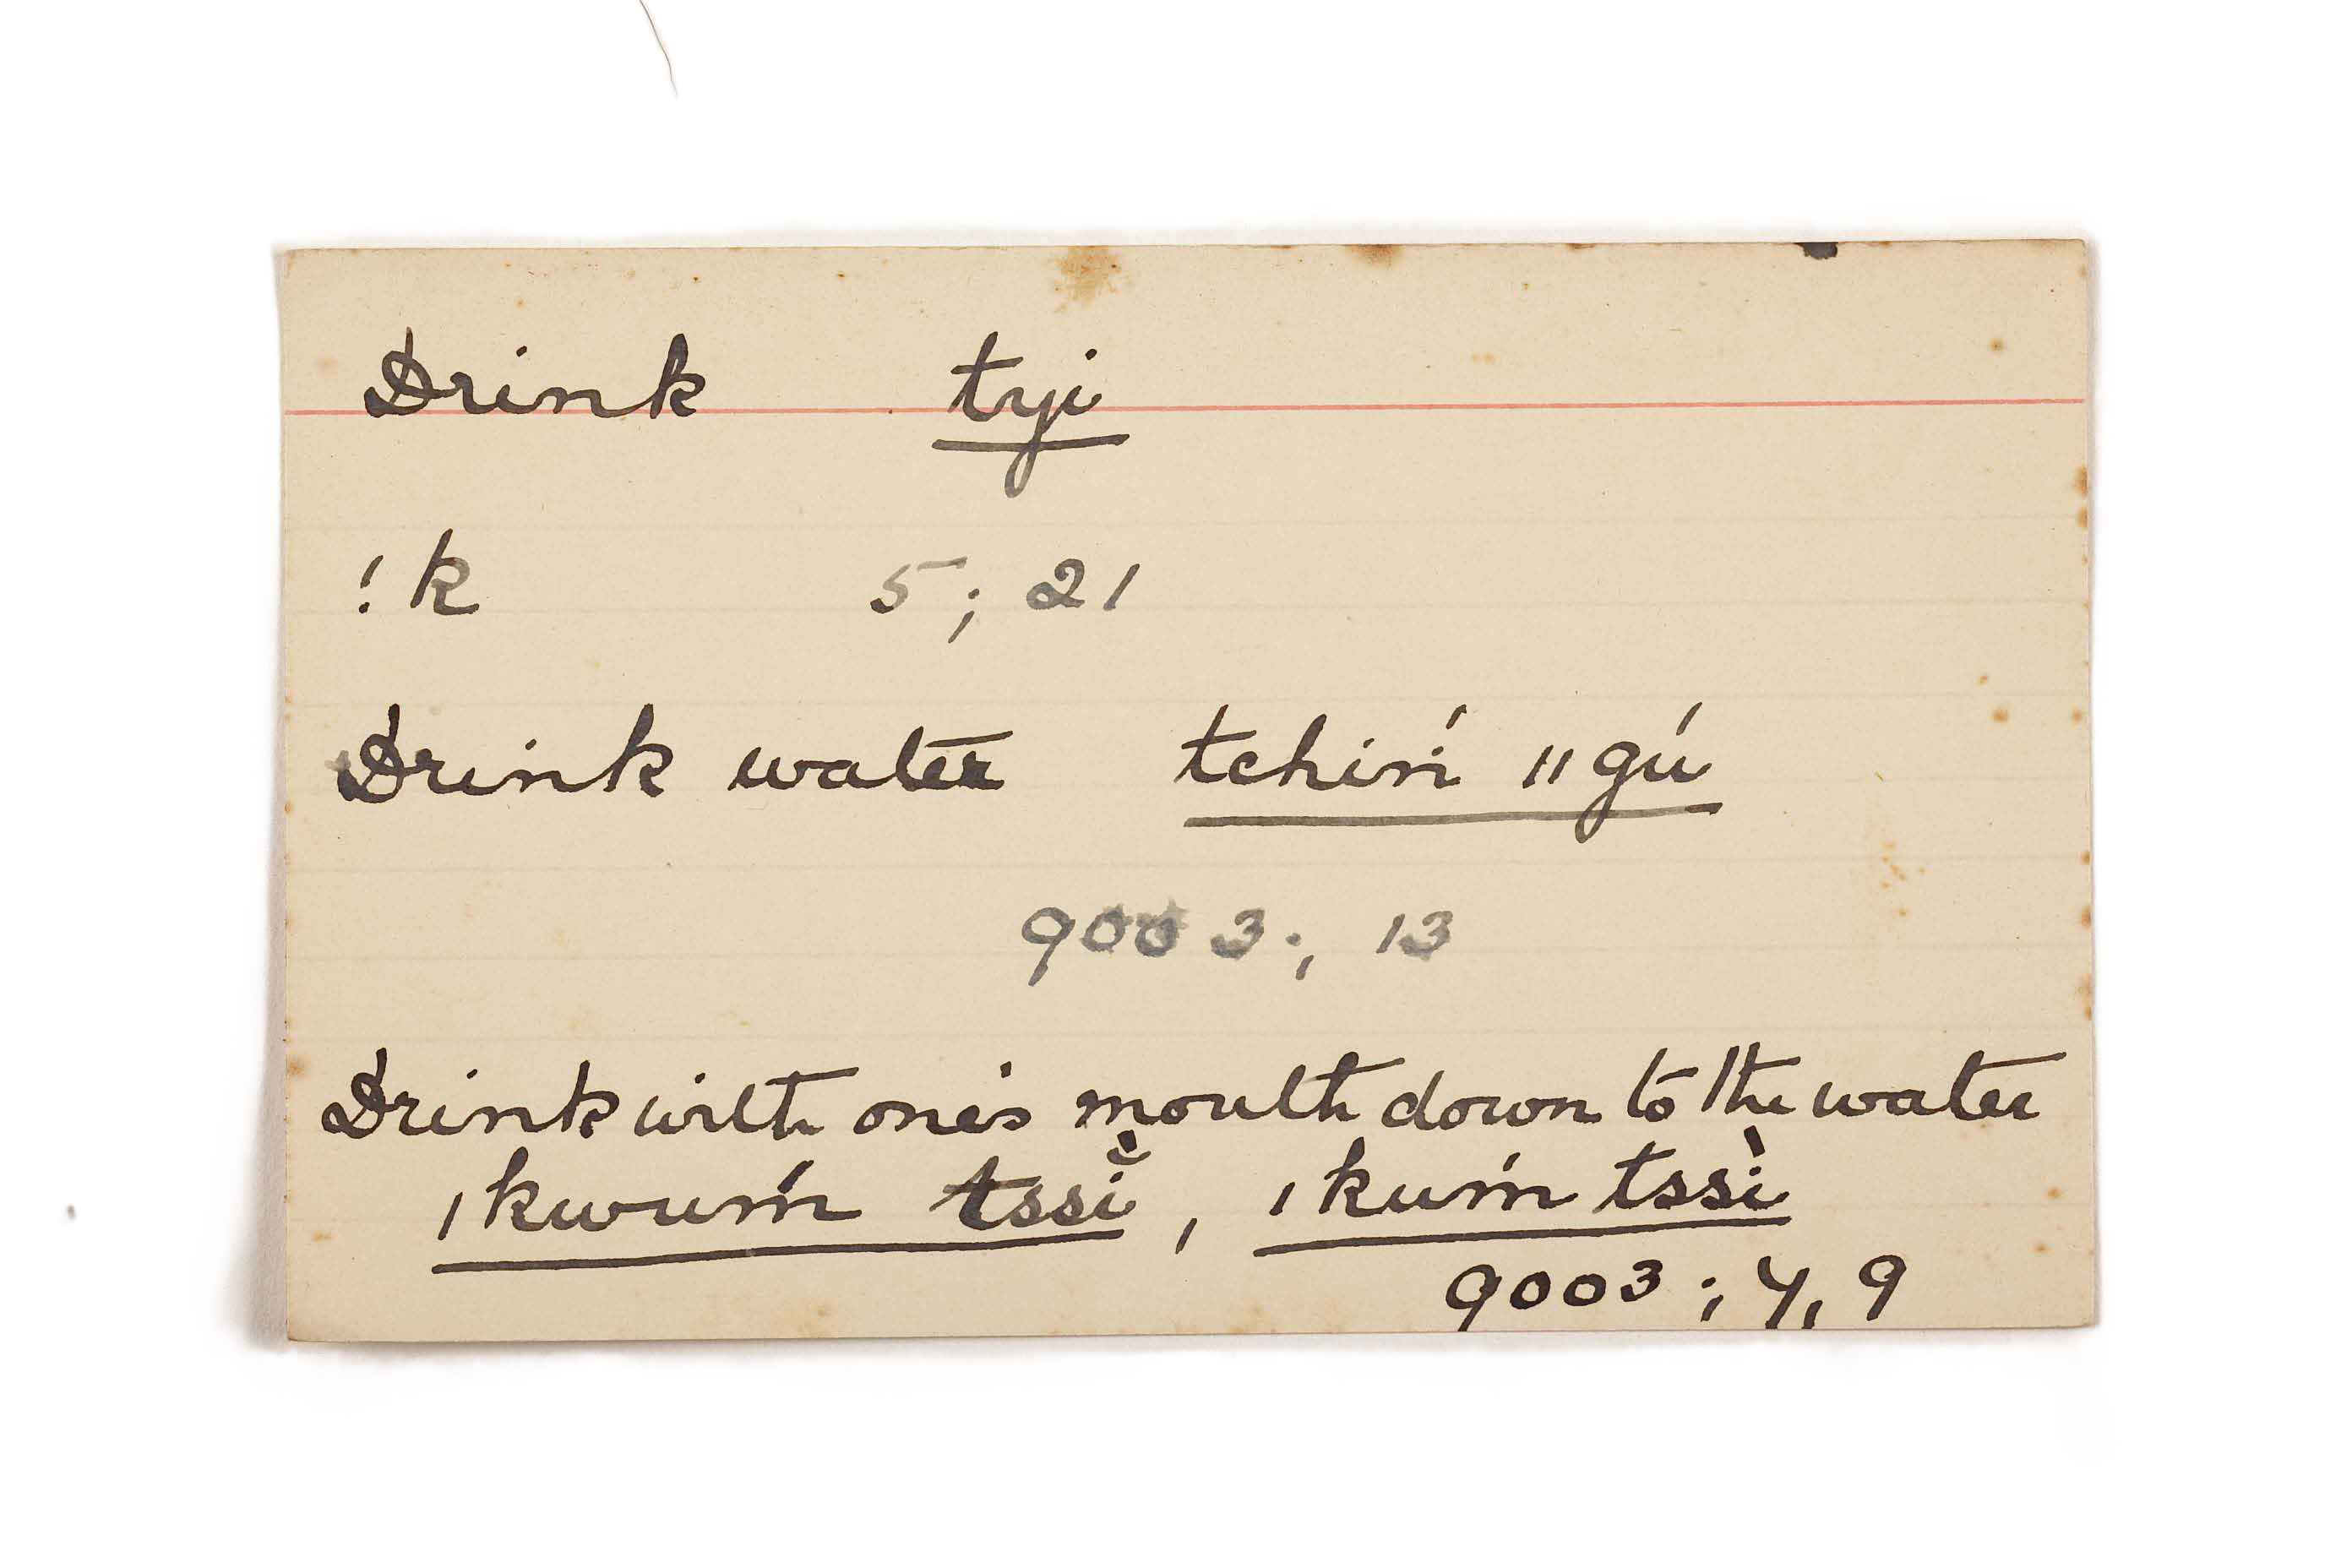 Drink tyi
!k 5; 21
Drink water tchirí ǁgú
9003; 13
Drink with one's mouth down to the water
ǀkwuḿ tssĭ̀, ǀkuḿ tssì
9003; 4, 9